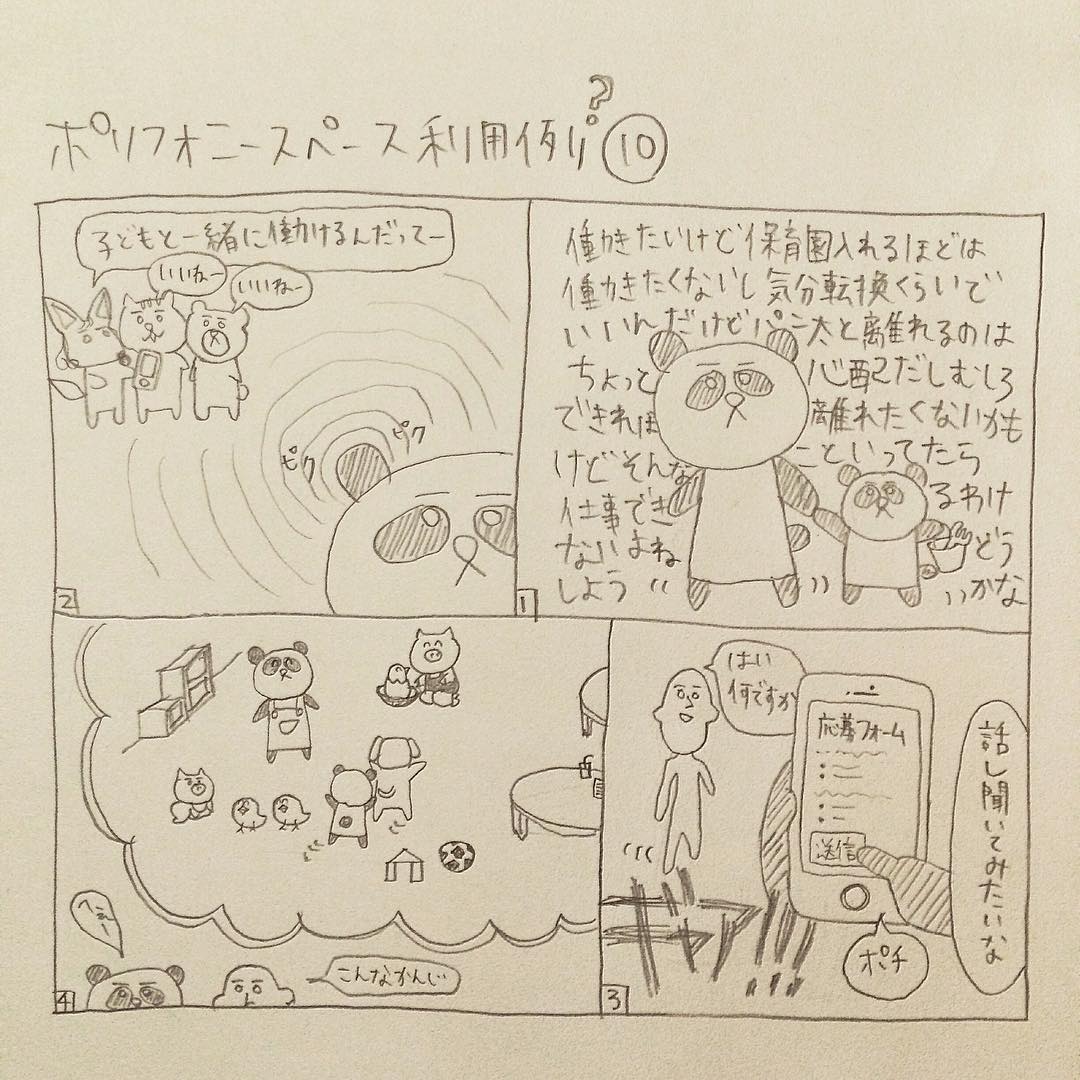 ポリフォニースペース利用例?⑩
働きたいけど保育園入れるほどは
働きたくないし気分転換くらいで
いいんだけどパン太と離れるのは
ちょっと心配だしむしろ
できれば離れたくないかも
けどそんなこといってたら
仕事できるわけ
ないよねどう
しようかな
1
子どもと一緒に働けるんだってー
いいねー
いいねー
ピク
ピク
2
話し聞いてみたいな
応募フォーム
送信
ポチ
はい
何ですか
3
こんなかんじ
へぇー
4